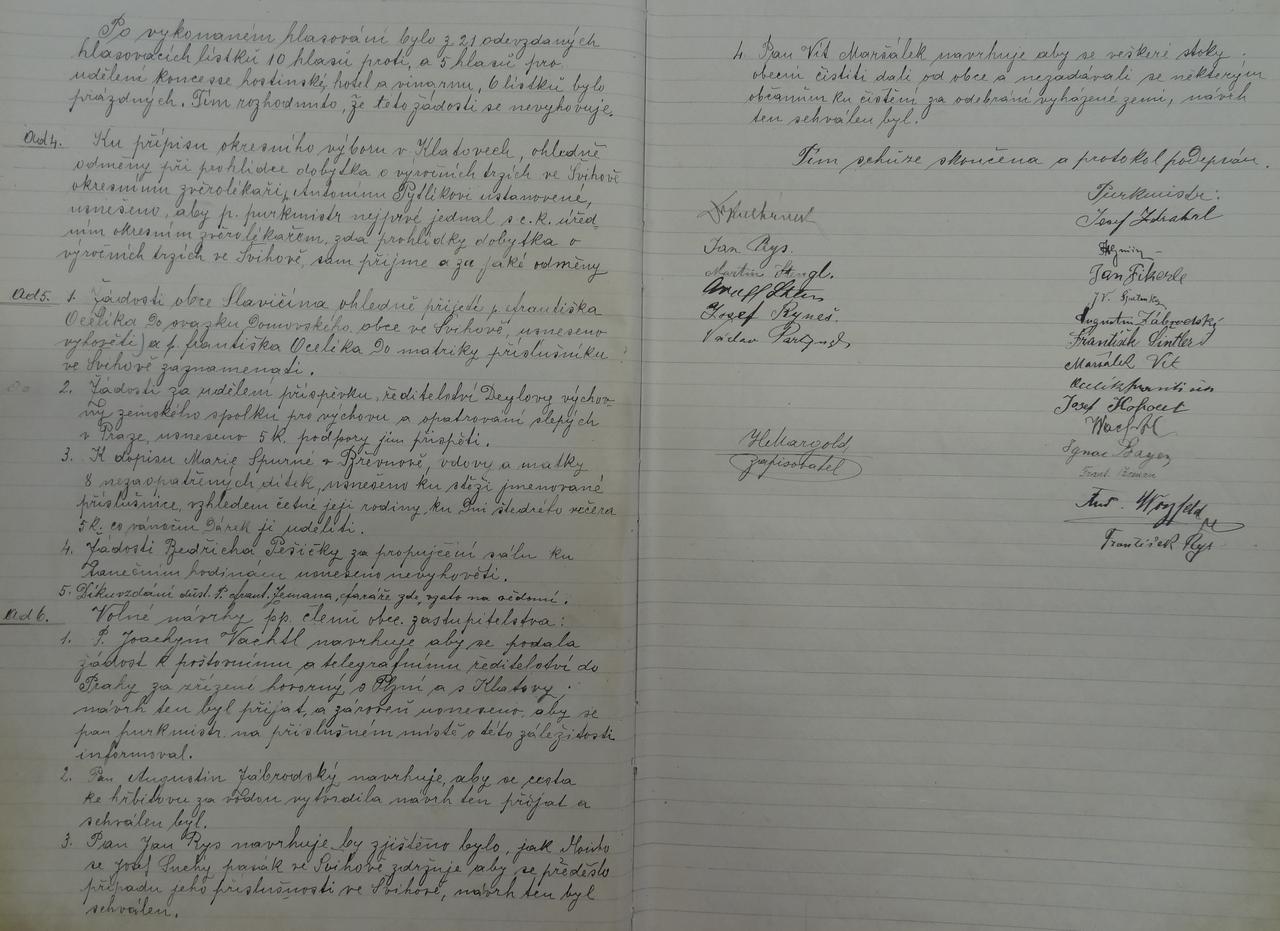 Po vykonaném hlasování bylo z 21 odevzdaných
hlasovacích lístků 10 hlasů proti, a 5 hlasů pro
udělení koncesse hostinský, hotel a vinarnu, 6 lístků bylo
prázdných. Tím rozhodnuto, že této žádosti se nevyhovuje.
Ad 4. Ku přípisu okresního výboru v Klatovech, ohledně
odměny při prohlídce dobytka o výročních trzích ve Švihově
okresnímu zvěrolékaři, Antonínu Pytlíkovi ustanovené,
usnešeno, aby p. purkmistr nejprvé jednal s c. k. úřed-
ním okresním zvěrolékařem, zda prohlídky dobytka o
výročních trzích ve Švihově, sám přijme a za jaké odměny
Ad 5. 1. Žádosti obce Slavičína ohledně přijetí p. Františka
Ocelíka do svazku domovského obce ve Švihově, usneseno
vyhověti a p. Františka Ocelíka do matriky příslušníku
ve Švihově zaznamenati.
2. Žádosti za udělení příspěvku, ředitelství Deylovy výchov-
ny zemského spolku pro výchovu a opatrování slepých
v Praze, usneseno 5 k. podpory jim přispěti.
3. K dopisu Marie Spurné v Břevnově, vdovy a matky
8 nezaopatřených dítek, usneseno ku stěží jmenované
příslušnice, vzhledem četné její rodiny, ku dni štedrého večera
5 k. co vánoční dárek ji uděliti.
4. Žádosti Bedřicha Pešičky za propujčení sálu ku
tanečním hodinám usneseno nevyhověti.
5. Díkuvzdání důst. P. Frant. Zemana, faráře zde, vzato na vědomí.
Ad 6. Volné návrhy pp. členů obec. zastupitelstva:
1. P. Joachym Vachtl navrhuje aby se podala
žádost k poštovnímu a telegrafnímu ředitelství do
Prahy za zřízení hovorny s Plzní a s Klatovy;
návrh ten byl přijat, a zároveň usneseno, aby se
pan purkmistr na příslušném místě o této záležitosti
informoval.
2. Pan Augustin Zábrodský navrhuje, aby se cesta
ke hřbitovu za vodou vytvrdila návrh ten přijat a
schválen byl.
3. Pan Jan Rys navrhuje by zjištěno bylo, jak dlouho
se Josef Suchý pasák ve Švihově zdržuje aby se předešlo
případu jeho příslušnosti ve Švihově, návrh ten byl
schválen.
4. Pan Vít Maršálek navrhuje aby se veškeré stoky
obecní čistiti dali od obce a nezadávali se některým
občanům ku čistění za odebrání vyházené zemi, návrh
ten schválen byl.
Tím schůze skončena a protokol podepsán.
Jan Rys.
Martin Stengl.
Josef Ryneš.
Václav
HMargold
zapisovatel
Purkmistr:
Josef Zdrahal
Jan Fikerle
Augustin Zábrodský
František Sintler
Maršálek Vít
Ocelík František
Josef
Wachtl
Ignac
Frant. Zeman
Ant.
František Rys